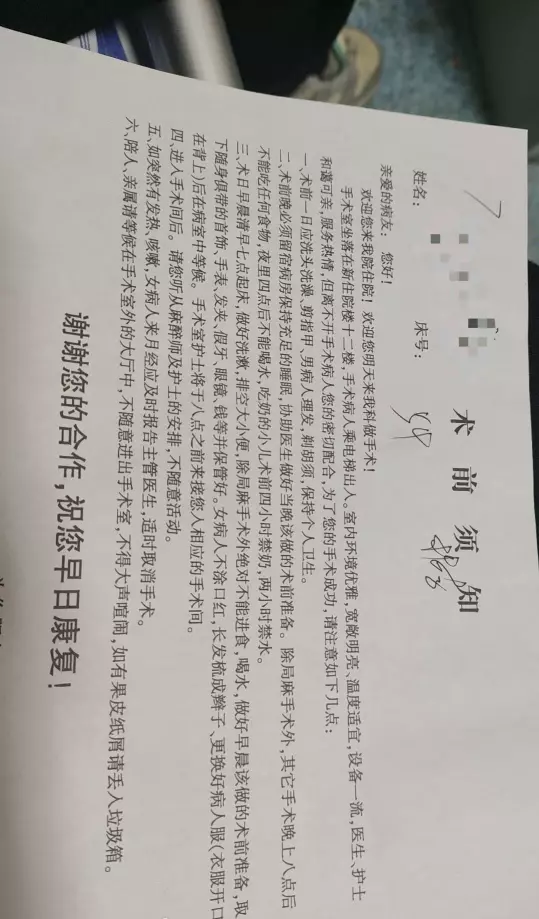 术前须知
姓名： 床号：
亲爱的病友： 您好！
欢迎您来我院住院！欢迎您明天来我科做手术！
手术室坐落在新住院楼十二楼，手术病人乘电梯出入。室内环境优雅，宽敞明亮、温度适宜，设备一流，医生、护士
和蔼可亲，服务热情，但离不开手术病人您的密切配合，为了您的手术成功，请注意如下几点：
一、术前一日应洗头洗澡、剪指甲、男病人理发，剃胡须，保持个人卫生。
二、术前晚必须留宿病房保持充足的睡眠，协助医生做好当晚该做的术前准备。除局麻手术外，其它手术晚上八点后
不能吃任何食物，夜里四点后不能喝水，吃奶的小儿术前四小时禁奶，两小时禁水。
三、术日早晨清早七点起床，做好洗漱，排空大小便，除局麻手术外绝对不能进食，喝水，做好早晨该做的术前准备，取
下随身俱带的首饰、手表、发夹、假牙、眼镜、钱等并保管好。女病人不涂口红，长发梳成辫子、更换好病人服(衣服开口
在背上)后在病室中等候。手术室护士将于八点之前来接您人相应的手术间。
四、进入手术间后。请您听从麻醉师及护士的安排，不随意活动。
五、如突然有发热、咳嗽，女病人来月经应及时报告主管医生，适时取消手术。
六、陪人、亲属请等候在手术室外的大厅中，不随意进出手术室，不得大声喧闹，如有果皮纸屑请丢入垃圾箱。
谢谢您的合作，祝您早日康复！